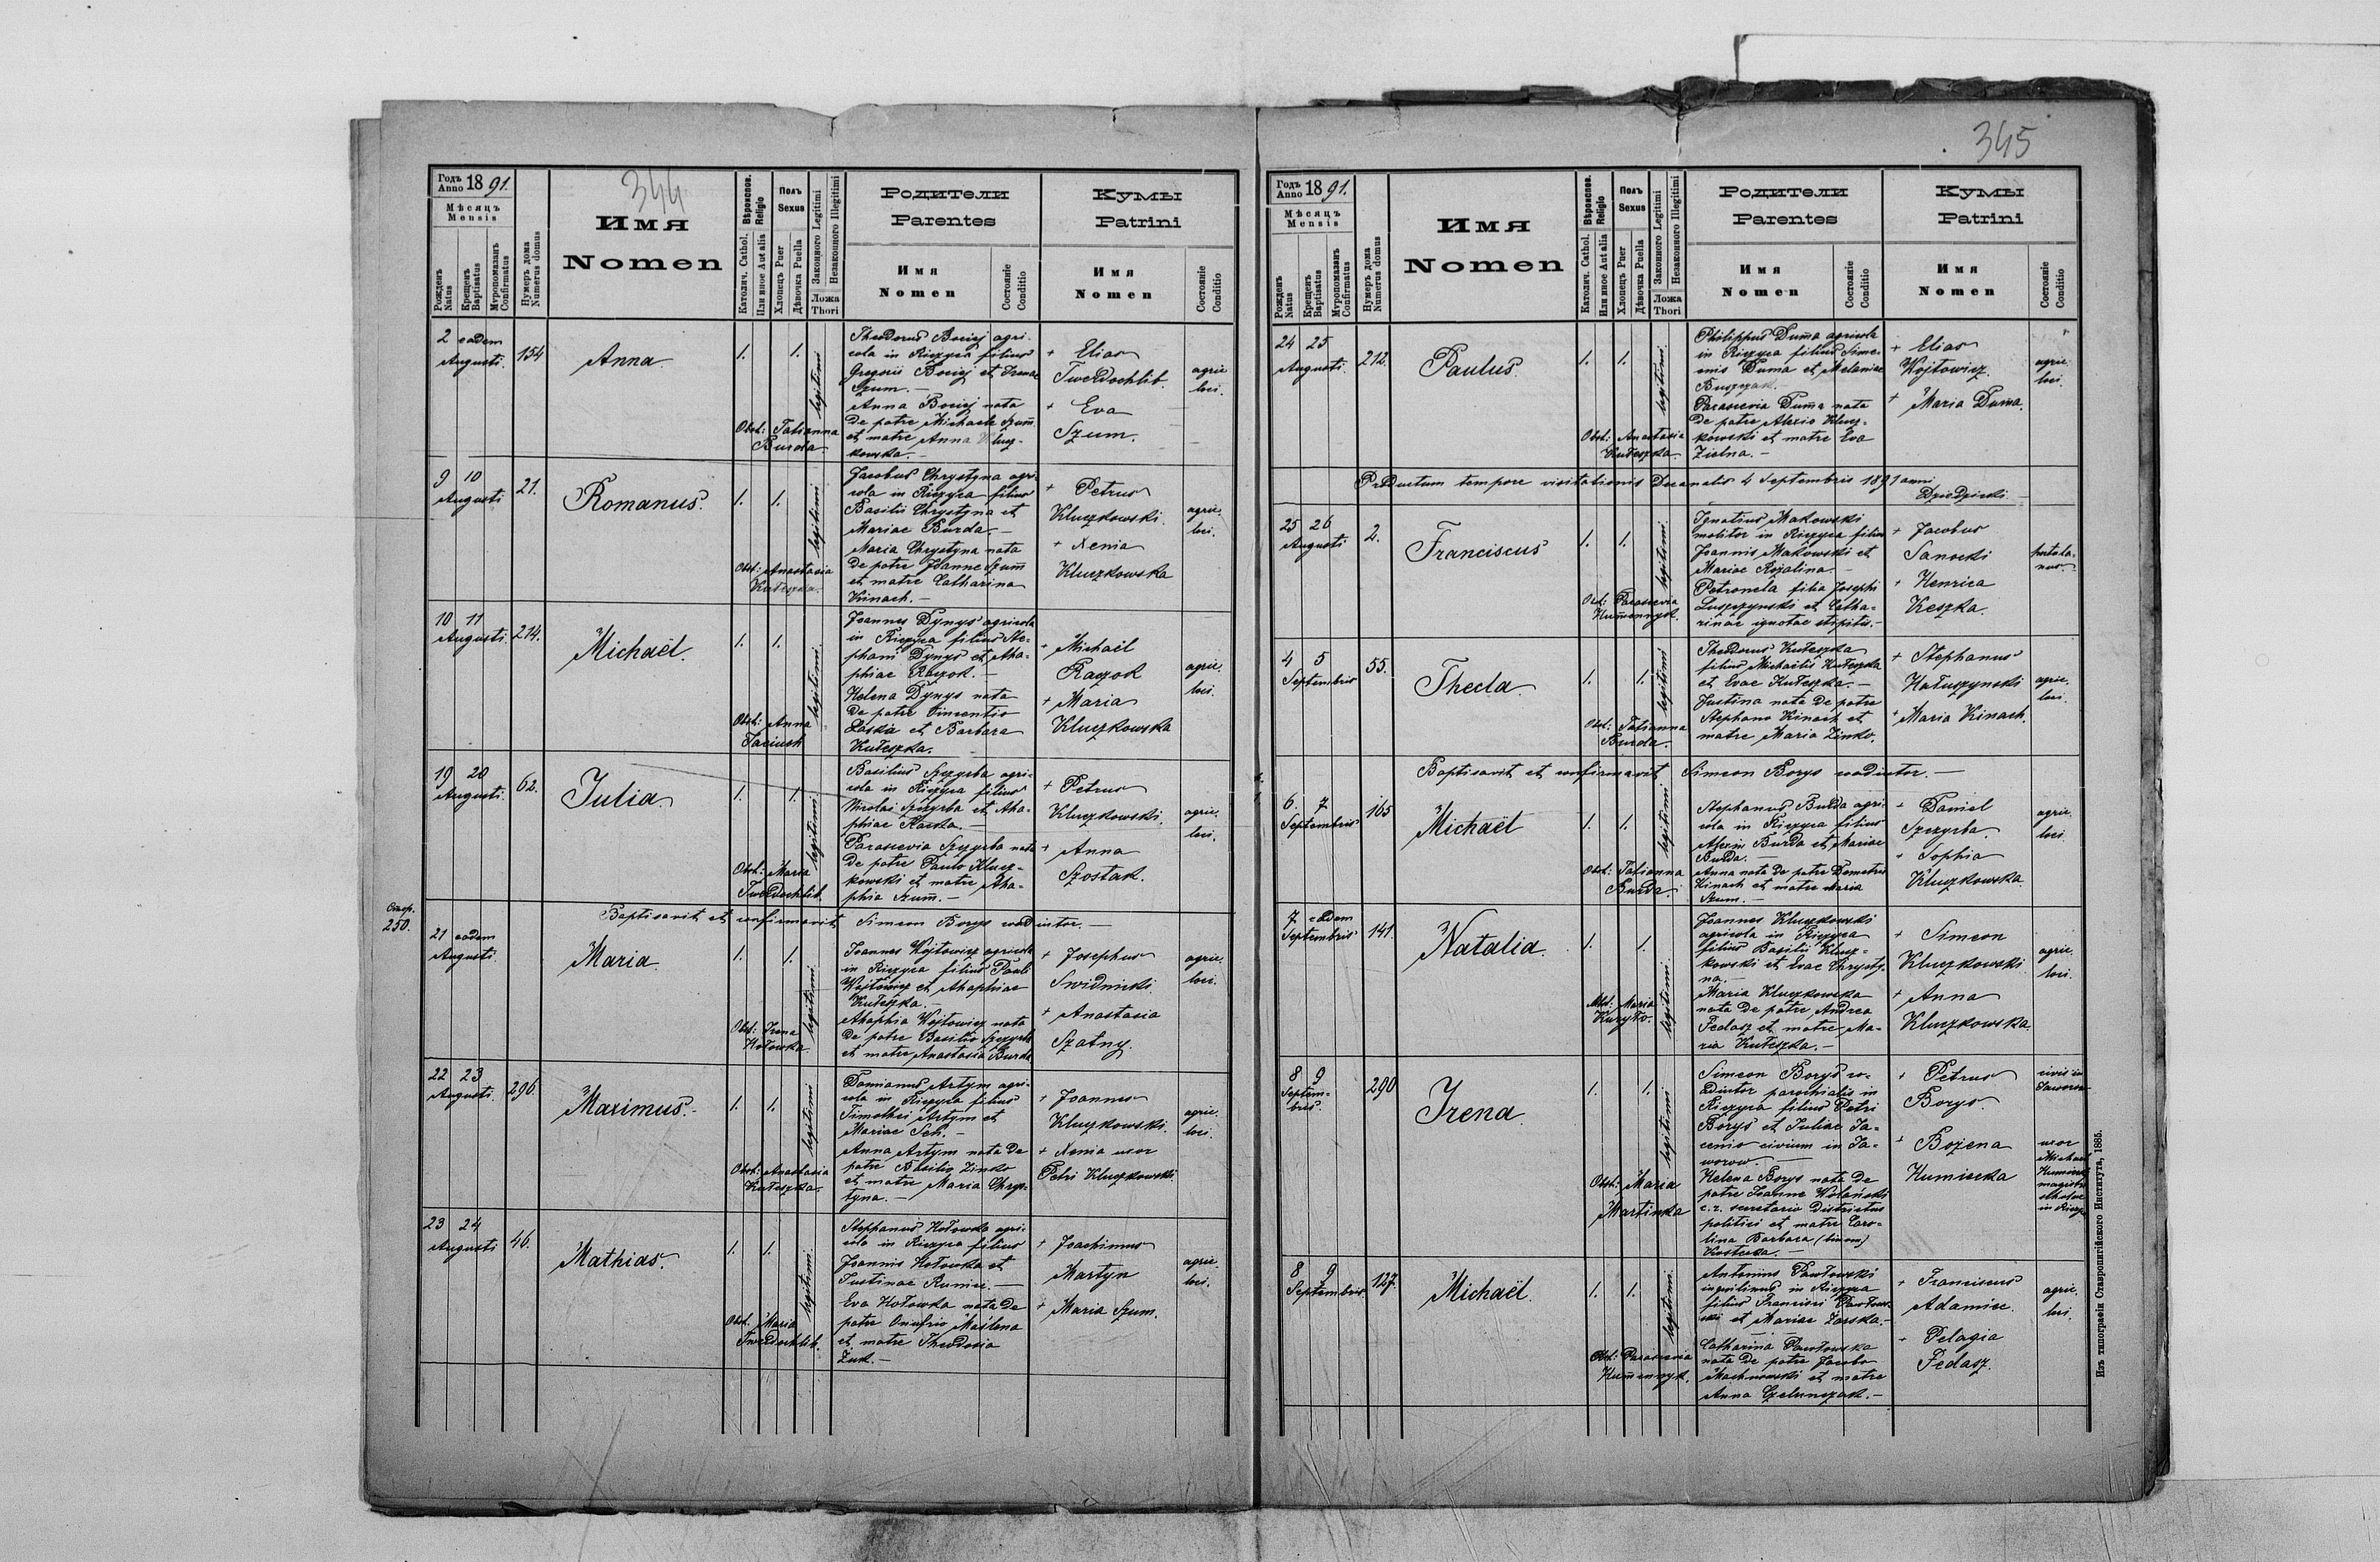 344
Годъ Anno 1891.
Мѣсяцъ Mensis
Рожденъ Natus
Крещенъ Baptisatus
Муропомазанъ Confirmatus
Нумеръ дома Numerus domus
Имя
Nomen
Вѣроиспов. Religio
Католич. Cathol.
Или иное Aut alia
Полъ Sexus
Хлопецъ Puer
Дѣвочка Puella
Законного Legitimi
Незаконного Illegitimi
Ложа Thori
Родители
Parentes
Имя Nomen
Состояніе Conditio
Кумы
Patrini
Имя Nomen
Состояніе Conditio
2 eadem
Augusti.
154
Anna
1.
1.
legitimi
Obst: Tatianna
Burda.
Theodorus Bociej agri-
cola in Rieczyca filius
Gregorii Bociej et Irenae
Szum.—
Anna Bociej nata
de patre Michaele Szum
et matre Anna Klucz-
kowska.—
+ Elias
Twerdochlib.
+ Eva
Szum.
agric.
loci.
9 10
Augusti
21.
Romanus.
1.
1.
legitimi
Obst: Anastasia
Kuteszka.
Jacobus Chrystyna agri-
cola in Rieczyca filius
Basilii Chrystyna et
Mariae Burda.—
Maria Chrystyna nata
de patre Joanne Szum
et matre Catharina
Kinach.—
+ Petrus
Kluczkowski.
+ Xenia
Kluczkowska
agric.
loci.
10 11
Augusti.
214.
Michaël.
1.
1.
legitimi
Obst: Anna
Joannes Dynys agricola
in Rieczyca filius Ste-
phani Dynys et Aha-
phiae Raczok.—
Helena Dynys nata
de patre Vincentio
Laska et Barbara
Kuteszka.
+ Michaël
Raczok
+ Maria
Kluczkowska
agric.
loci.
19 20
Augusti.
62.
Julia.
1.
1.
legitimi
Obst: Maria
Twerdochlib.
Basilius Szczyrba agri-
cola in Rieczyca filius
Nicolai Szczyrba et Aha-
phiae Raczka.—
Parascevia Szczyrba nata
de patre Paulo Klucz-
kowski et matre Aha-
phia Szum.—
+ Petrus
Kluczkowski.
+ Anna
Szostak.
agric.
loci.
Стор.
250.
Baptisavit et confirmavit Simeon Borys coadiutor.—
21 eadem
Augusti.
Maria
1.
1.
legitimi
Obst: Irena
Hotowka.
Joannes Wojtowicz agricola
in Rieczyca filius Pauli
Wojtowicz et Ahaphiae
Kuteszka.—
Ahaphia Wojtowicz nata
de patre Basilio Szczyrba
et matre Anastasia Burda
+ Josephus
Swidnicki.
+ Anastasia
Szatny.
agric.
loci.
22 23
Augusti.
296.
Maximus.
1.
1.
legitimi
Obst: Anastasia
Kuteszka.
Damianus Artym agri-
cola in Rieczyca filius
Timothei Artym et
Mariae Seń.—
Anna Artym nata de
patre Basilio Zinko
et matre Maria Chrys-
tyna.—
+ Joannes
Kluczkowski.
+ Xenia uxor
Petri Kluczkowski.
agric.
loci.
23 24
Augusti
46.
Mathias.
1.
1.
legitimi.
Obst. Maria
Twerdochlib.
Stephanus Hotowka agri-
cola in Rieczyca filius
Joannis Hotowka et
Justinae Kuniec.—
Eva Hotowka nata de
patre Onufrio Maślena
et matre Theodosia
Żuk.—
+ Joachimus
Martyn
+ Maria Szum.
agric.
loci.
345
Годъ Anno 1891.
Мѣсяцъ Mensis
Рожденъ Natus
Крещенъ Baptisatus
Муропомазанъ Confirmatus
Нумеръ дома Numerus domus
Имя
Nomen
Вѣроиспов. Religio
Католич. Cathol.
Или иное Aut alia
Полъ Sexus
Хлопецъ Puer
Дѣвочка Puella
Законного Legitimi
Незаконного Illegitimi
Ложа Thori
Родители
Parentes
Имя Nomen
Состояніе Conditio
Кумы
Patrini
Имя Nomen
Состояніе Conditio
24 25
Augusti.
212.
Paulus.
1.
1.
legitimi.
Obst: Anastasia
Kuteszka.
Philippus Duma agricola
in Rieczyca filius Sime-
onis Duma et Melaniae
Buszczak.
Parascevia Duma nata
de patre Alexio Klucz-
kowski et matre Eva
Zielna.—
+ Elias
Wojtowicz.
+ Maria Duma.
agric.
loci.
Productum tempore visitationis Decanalis 4 Septembris 1891 anni
Dziedzicki.
25 26
Augusti
2.
Franciscus
1.
1.
legitimi.
Obst: Parascevia
Ignatius Makowski
molitor in Rieczyca filius
Joannis Makowski et
Mariae Rozalina.—
Petronela filia Josephi
Luszczynski et Catha-
rinae ignotae stipitis.—
+ Jacobus
Sanocki
+ Henrica
Keszka.
4 5
Septembris
55.
Thecla.
1.
1.
legitimi
Obst: Tatianna
Burda.
Theodorus Kuteszka
filius Michaelis Kuteszka
et Evae Kuteszka.—
Justina nata de patre
Stephano Kinach et
matre Maria Zinko.
+ Stephanus
Hatuszynski
+ Maria Kinach.
agric.
loci.
Baptisavit et confirmavit Simeon Borys coadiutor.—
6. 7
Septembris
165
Michaël
1.
1.
legitimi
Obst: Tatianna
Burda.
Stephanus Burda agri-
cola in Rieczyca filius
Alexii Burda et Mariae
Burda.—
Anna nata de patre Demetrio
Kinach et matre Maria
Szum.—
+ Daniel
Szczyrba
+ Sophia
Kluczkowska.
agric.
loci.
7 eadem
Septembris
141.
Natalia.
1.
1.
legitimi.
Obst: Maria
Kuryło.
Joannes Kluczkowski
agricola in Rieczyca
filius Basilii Klucz-
kowski et Evae Chrysty-
na.
Maria Kluczkowska
nata de patre Andrea
Fedasz et matre Ma-
ria Kuteszka.—
+ Simeon
Kluczkowski
+ Anna
Kluczkowska.
agric.
loci.
8 9
Septem-
bris.
290
Irena
1.
1.
legitimi
Obst: Maria
Martinka
Simeon Borys co-
adiutor parochialis in
Rieczyca filius Petri
Borys et Juliae Ja-
cenio civium in Ja-
worow.—
Helena Borys nata de
patre Joanne Wolański
c. r. secretario districtus
politici et matre Caro-
lina Barbara (binom)
+ Petrus
Borys.
+ Bożena
Kumiecka
civis in
Jaworow
uxor
Michael
magistri
scholae
8 9
Septembris
127.
Michaël.
1.
1.
legitimi.
Obst: Parascevia
Antonius Pawłowski
inquilinus in Rieczyca
filius Francisci Pawłow-
ski et Mariae Żarska.—
Catharina Pawłowska
nata de patre Jacobo
Machnowski et matre
Anna
+ Franciscus
Adamiec.
+ Pelagia
Fedasz.
agric.
loci.
Изъ типографіи Ставропигійского Института, 1885.